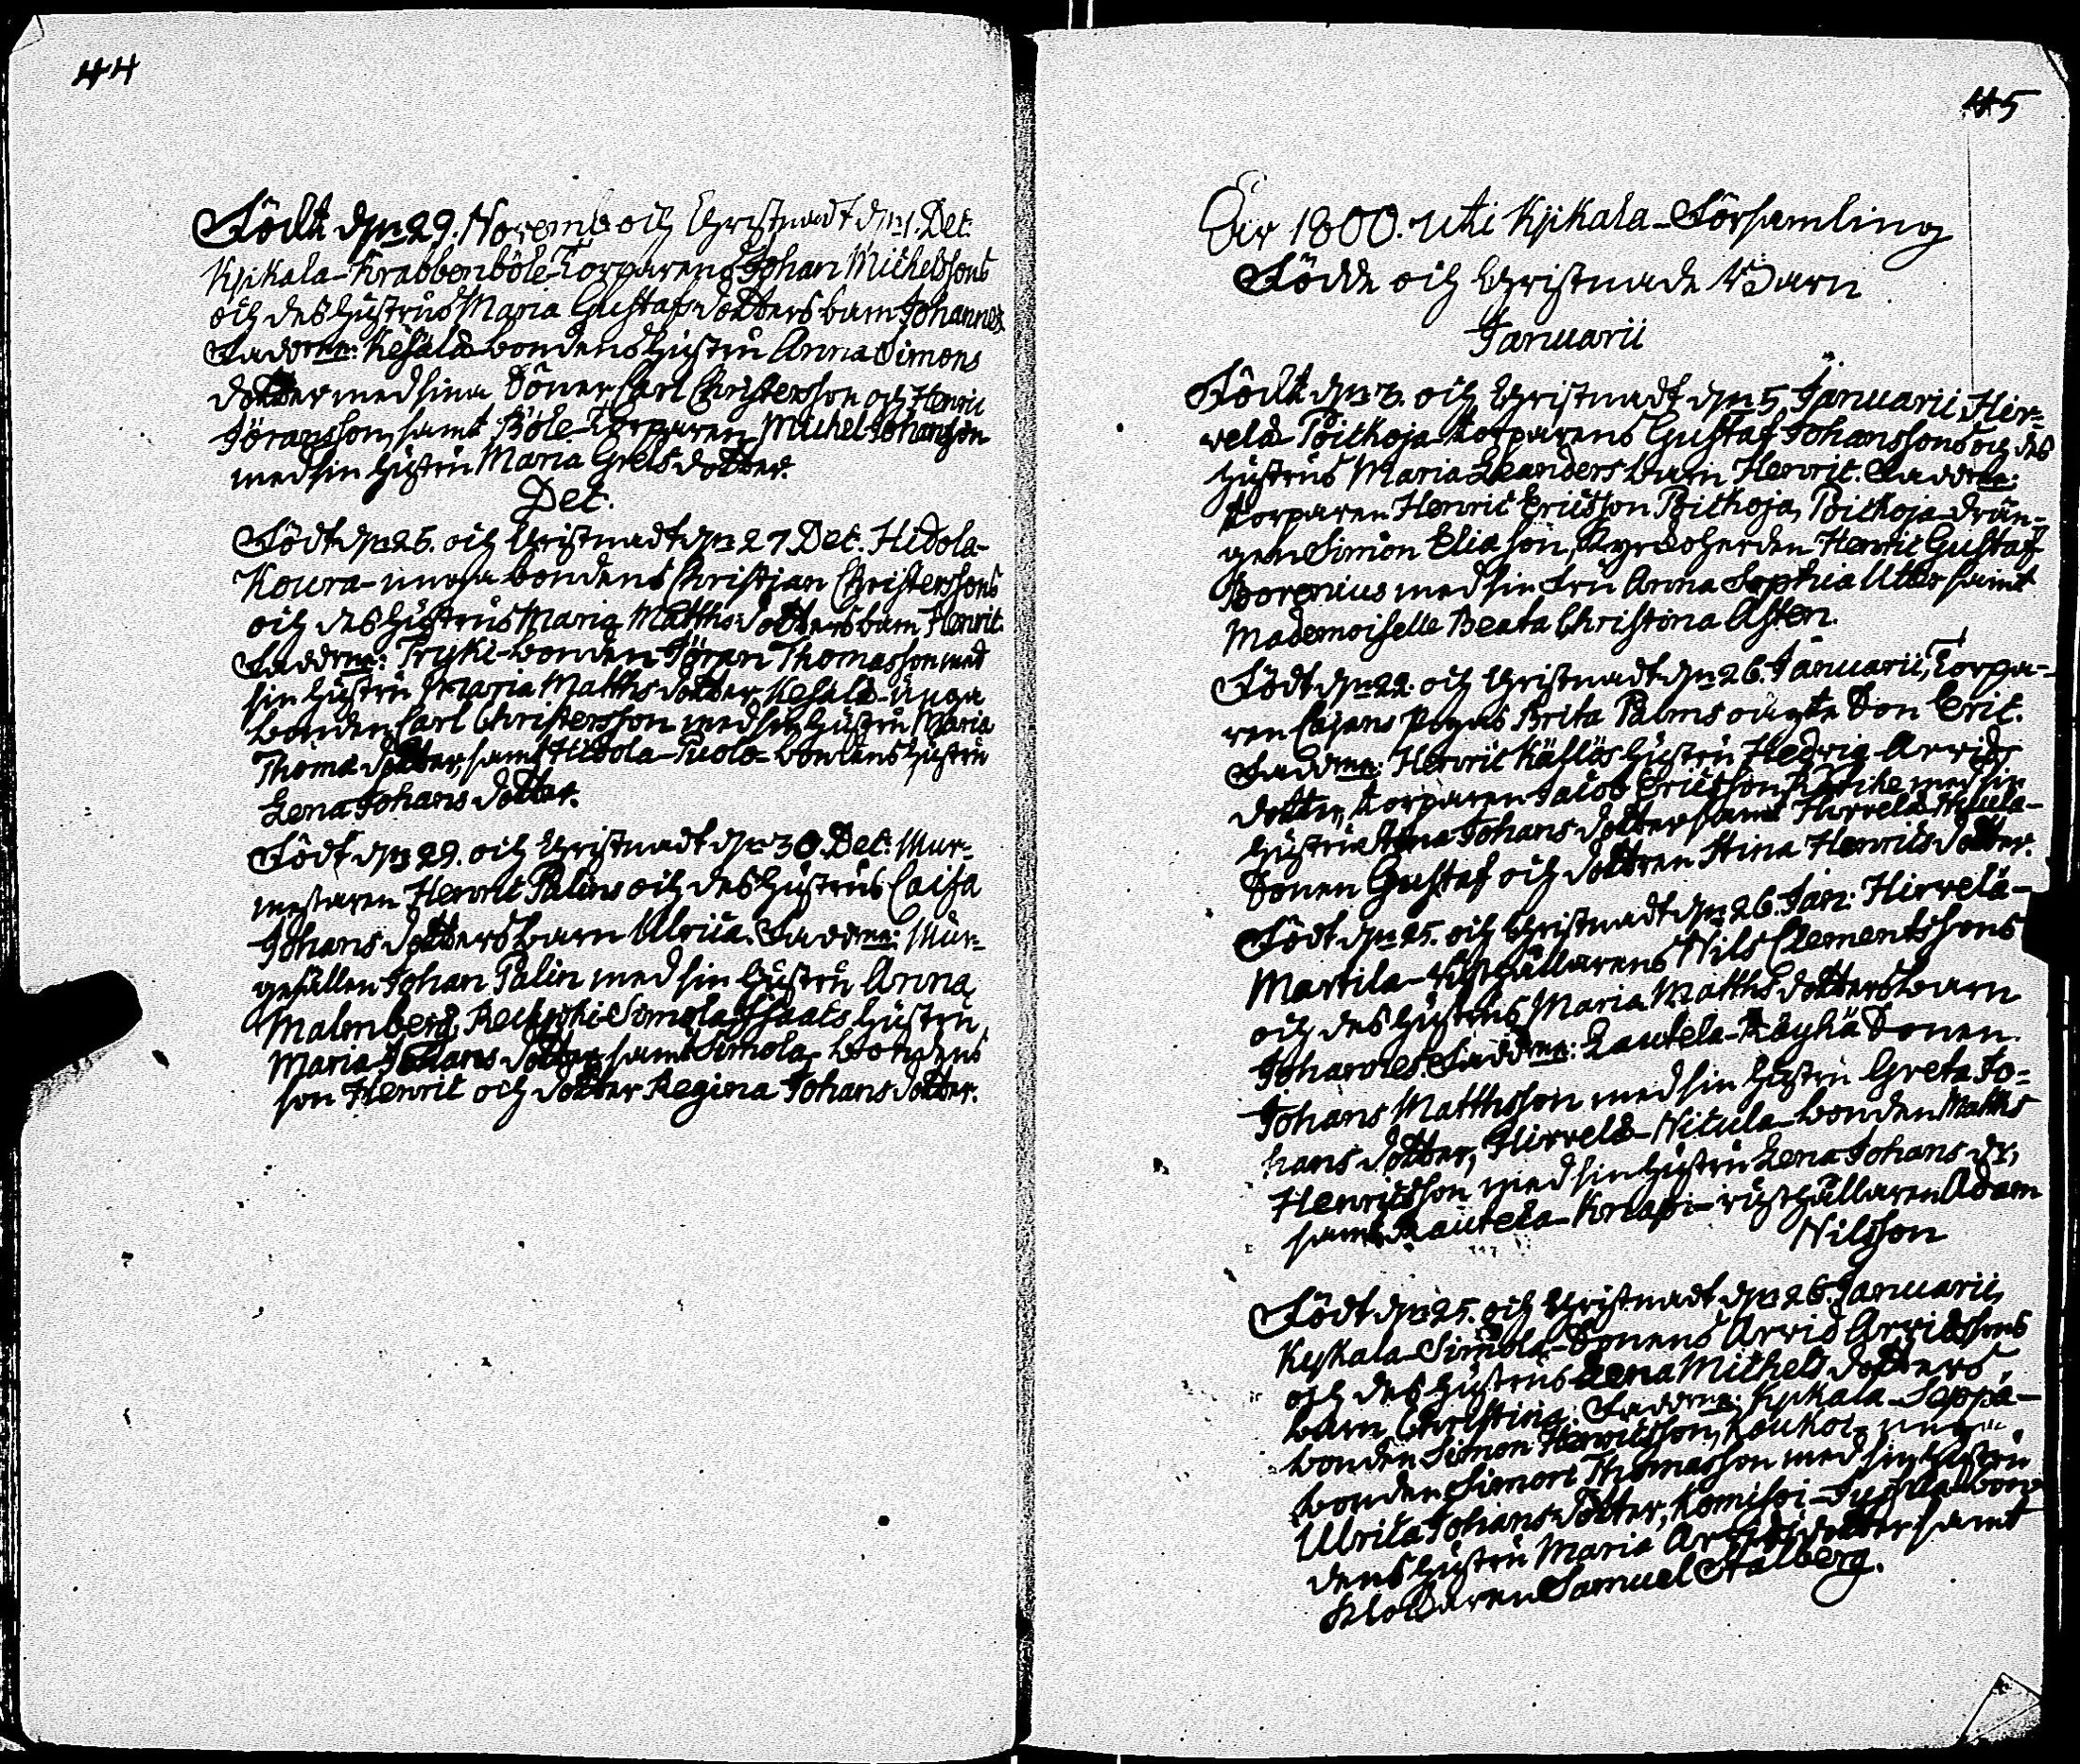 44
Födt d. 29. Novemb. och Christnadt d. 1. Dec.
Kjikala-Krabbenböle-Torparens Johan Michelssons
och des hustrus Maria Gustafsdotters barn Johannes.
Faddrar: Kesälä-bondens hustru Anna Simons
dotter med sina Söner, Carl Christersson och Henric
Jöransson, samt Böle-Torparen Michel Johansson
med sin hustru Maria Grels dotter.
Dec.
Födt d. 25. och Christnadt d. 27. Dec. Hidola-
Koura-unga bondens Christjan Christerssons
och des hustrus Maria Matths dotters barn Henric.
Faddrar: Tryki-bonden Jöran Thomasson med
sin hustru Maria Matths dotter, Kesälä-unga
bonden Carl Christersson med sin hustru Maria
Thomæ dotter, samt Hidola-Tuola-bondens hustru
Lena Johans dotter.
Födt d. 29. och Christnadt d. 30. Dec: Mur-
mestaren Henric Palins och des hustrus Caisa
Johans dotters barn Ulrica. Faddrar: Mur-
gesällen Johan Palin med sin hustru Anna
Malmberg, Simola Isaacs hustru,
Maria Johans dotter, samt Simola, bondens
son Henric och dotter Regina Johans dotter.
45
År 1800. uti Kjikala-Församling
Födde och Christnade Barn
Januarii
Födt d. 3. och Christnadt d. 5 Januarii Hir-
velä-Poickoja-torparens Gustaf Johanssons och des
hustrus Maria Leanders barn Henric. Faddrar:
torparen Henric Ericsson Poickoja, Poickoja-drän-
gen Simon Eliæ son, Kyrckoherden Henric Gustaf
Borenius med sin Fru Anna Sophia Utter samt
Mademoiselle Beata Christina Asten.
Födt d. 22. och Christnadt d. 26. Januarii, Torpa-
ren Cajans pigas Brita Palms oägta Son Eric.
Faddrar: Henric Käflös hustru Hedvig Arvids
dotter, torparen Jacob Ericsson med sin
hustru Anna Johans dotter samt Hirvelä
Sonen Gustaf och dottren Stina Henrics dotter.
Födt d. 25. och Christnadt d. 26. Jan: Hirvelä-
Martila-rusthållarens Nils Clementssons
och des hustrus Maria Matths dotters barn
Johannes. Faddrar: Rautela-Köyhä Sonen
Johans Matthsson med sin hustru Greta Jo-
hans dotter, Hirvelä-Nicula-bonden Matths
Henricsson med sin hustru Lena Johans dr,
samt Rautela-Knapi-rusthållaren Adam
Nilsson
Födt d. 25. och Christnadt d. 26. Januarii,
Kyikala-Simola-Sonens Arvid Arvidssons
och des hustrus Lena Michels dotters
barn Christina. Faddrar: Kyikala-Seppä-
bonden Simon Henricsson, unga
bonden Simon Thomasson med sin hustru
Ulrica Johans dotter, Komisoi-Jussila bon-
dens hustru Maria Arvids dotter samt
Klockaren Samuel Stålberg.